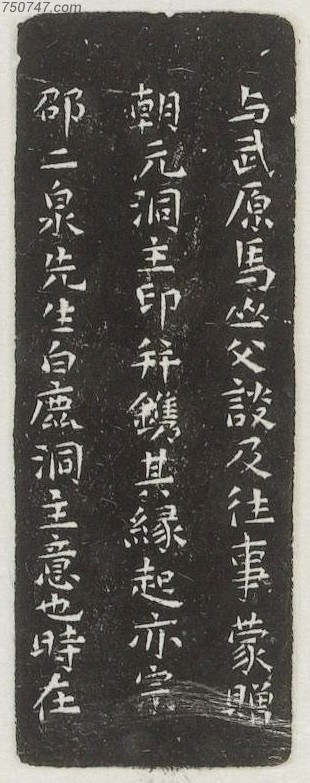 750747.com
与武原馬㞢父談及往事蒙贈
朝元洞主印并鐫其緣起亦宗
邵二泉先生白鹿洞主意也時在